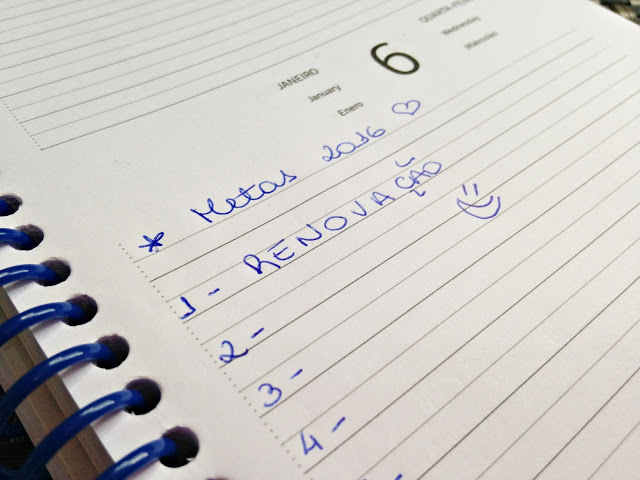 JANEIRO
January
Enero
6
QUARTA-FEI
Wednesday
Miércoles
* Metas 2016 ♡
1 - RENOVAÇÃO
2 -
3 -
4 -